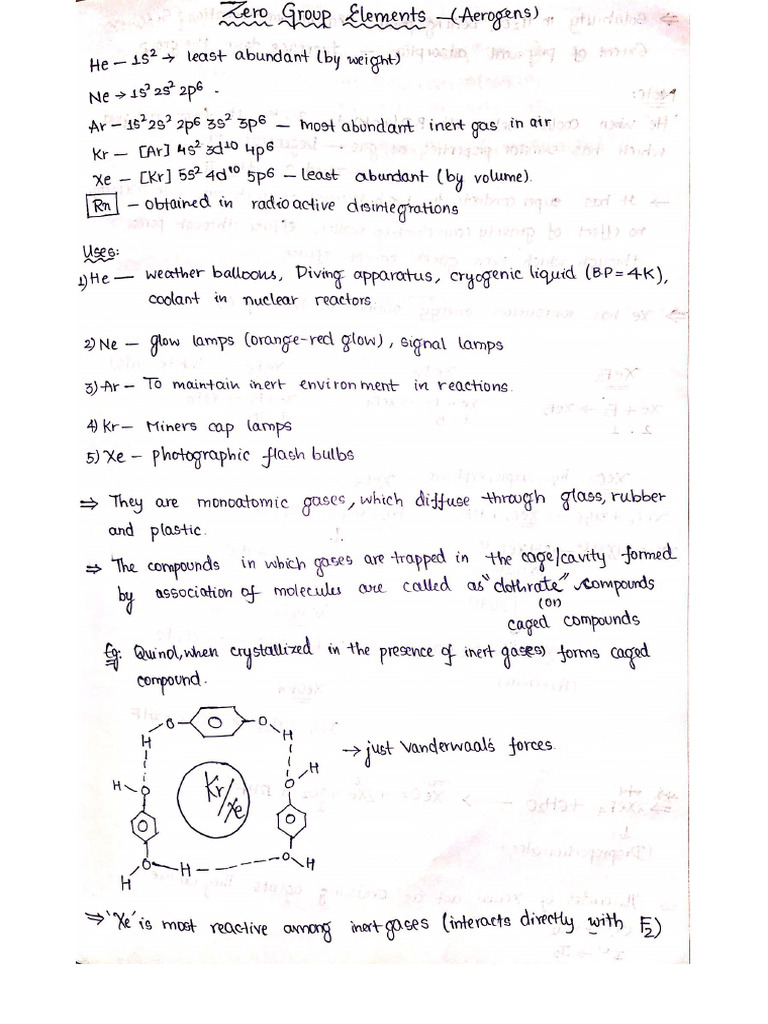 Zero Group Elements - (Aerogens)
He - 1s² → least abundant (by weight)
Ne → 1s² 2s² 2p⁶ .
Ar - 1s² 2s² 2p⁶ 3s² 3p⁶ - most abundant inert gas in air
Kr - [Ar] 4s² 3d¹⁰ 4p⁶
Xe - [Kr] 5s² 4d¹⁰ 5p⁶ - least abundant (by volume).
Rn - obtained in radioactive disintegrations
Uses:
1) He - weather balloons, Diving apparatus, cryogenic liquid (BP = 4K),
coolant in nuclear reactors.
2) Ne - glow lamps (orange-red glow), signal lamps
3) Ar - To maintain inert environment in reactions.
4) Kr - Miners cap lamps
5) Xe - photographic flash bulbs
⇒ They are monoatomic gases, which diffuse through glass, rubber
and plastic.
⇒ The compounds in which gases are trapped in the cage/cavity formed
by association of molecules are called as "clathrate" compounds
(or)
caged compounds
Eg: Quinol, when crystallized in the presence of inert gases) forms caged
compound.
O O
H H
→ just Vanderwaal's forces.
H H
O Kr/Xe O
O H O H
H
⇒ 'Xe' is most reactive among inert gases (interacts directly with F₂)